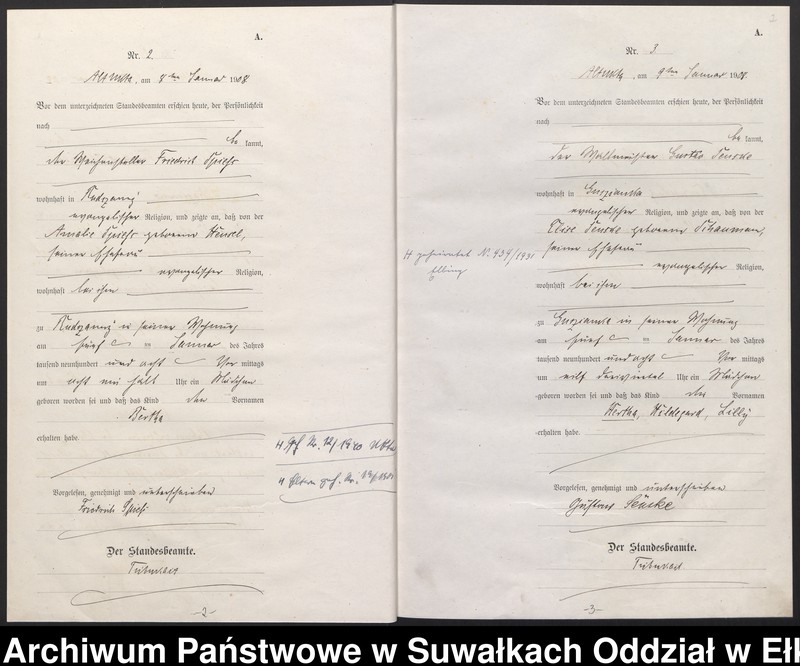 A.
Nr. 2
Alt Ukta, am 8ten Januar 1908
Vor dem unterzeichneten Standesbeamten erschien heute, der Persönlichkeit
nach
be kannt,
der Weichensteller Friedrich
wohnhaft in Rudczanny
evangelischer Religion, und zeigte an, daß von der
Amalie geborene
seiner Ehefrau
evangelischer Religion,
wohnhaft bei ihm
zu Rudczanny in seiner Wohnung
am fünf ten Januar des Jahres
tausend neunhundert und acht Vor mittags
um acht ein halb Uhr ein Mädchen
geboren worden sei und daß das Kind den Vornamen
Bertha
erhalten habe.
Vorgelesen, genehmigt und unterschrieben
Friedrich
Der Standesbeamte.
-2-
H
Nr. 12/1940 Ukta
A.
Nr. 3
Alt Ukta, am 9ten Januar 1908.
Vor dem unterzeichneten Standesbeamten erschien heute, der Persönlichkeit
nach
be kannt,
der Gustav
wohnhaft in Guszianka
evangelischer Religion, und zeigte an, daß von der
geborene
seiner Ehefrau
evangelischer Religion,
wohnhaft bei ihm
zu Guszianka in seiner Wohnung
am fünf ten Januar des Jahres
tausend neunhundert und acht Vor mittags
um elf dreiviertel Uhr ein Mädchen
geboren worden sei und daß das Kind den Vornamen
Hertha, Hildegard, Lilly
erhalten habe.
Vorgelesen, genehmigt und unterschrieben
Gustav
Der Standesbeamte.
-3-
H geheiratet N. 939/1931
Elbing
Archiwum Państwowe w Suwałkach Oddział w Eł